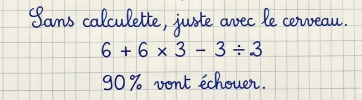 Sans calculette, juste avec le cerveau.
6 + 6 × 3 - 3 ÷ 3
90% vont échouer.